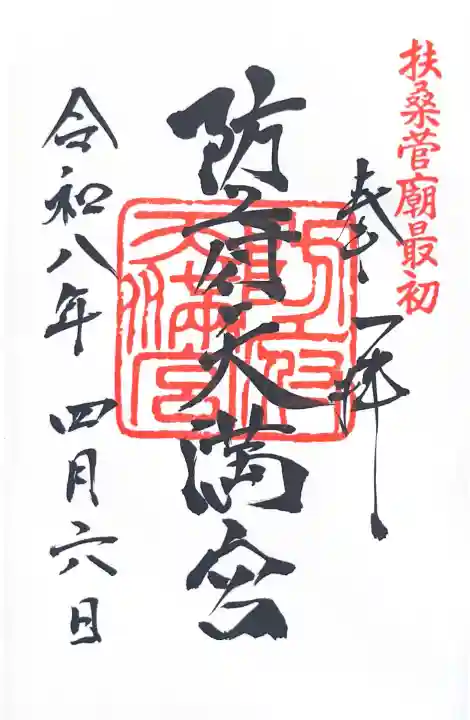 扶桑菅廟最初
奉拝
防府天満宮
防府
天満宮
令和八年 四月六日